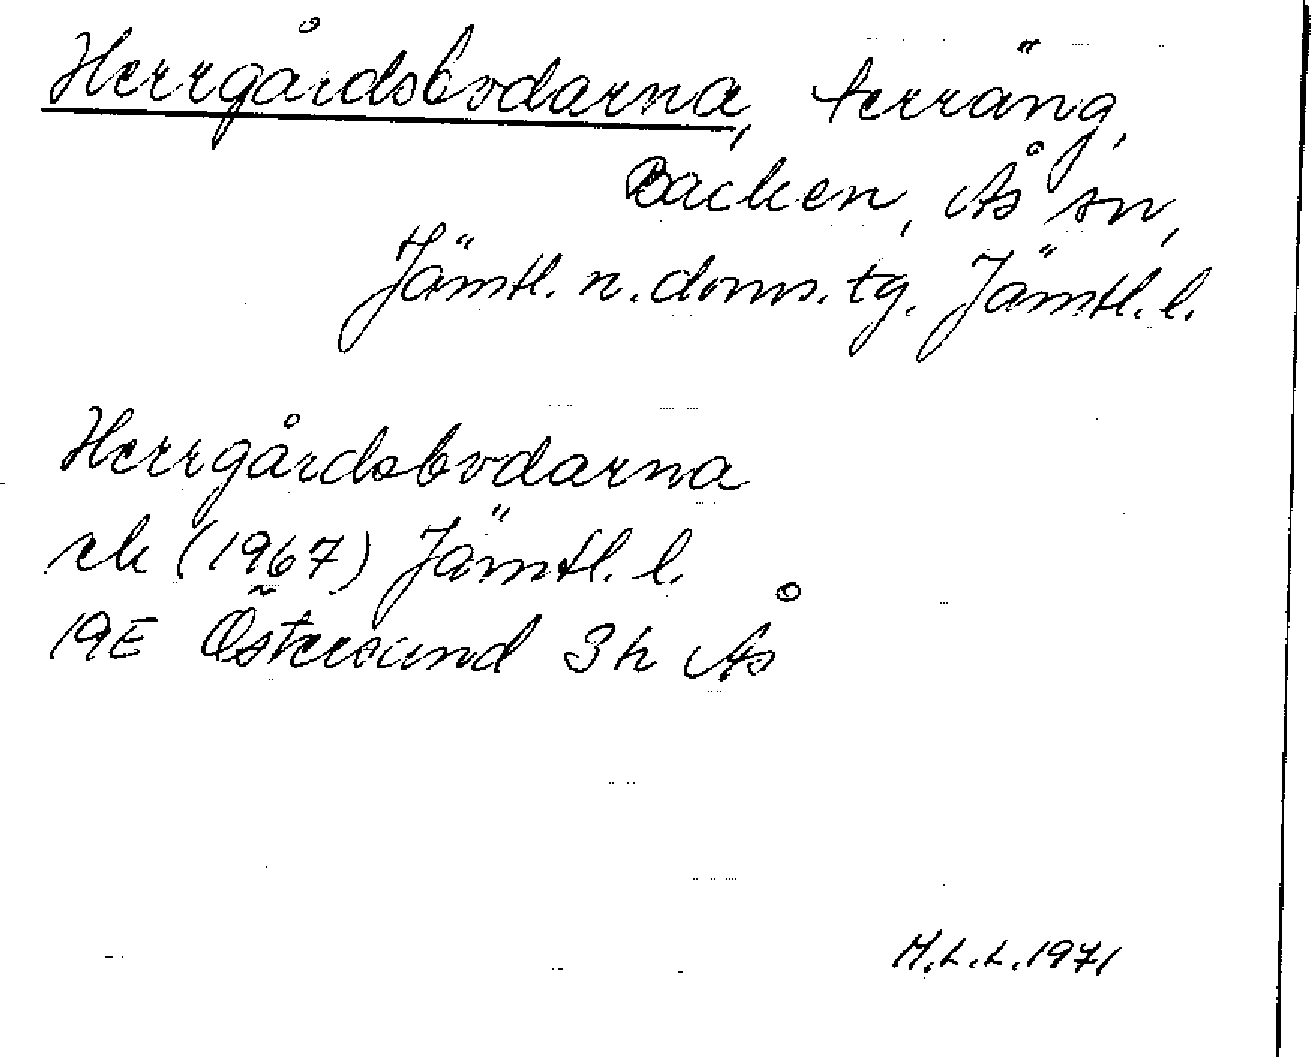 Herrgårdsbodarna, terräng,
Backen, Ås sn,
Jämtl. n. doms. tg. Jämtl. l.
Herrgårdsbodarna
ek (1967) Jämtl. l.
19E Östersund 3h Ås
M.L.L. 1971